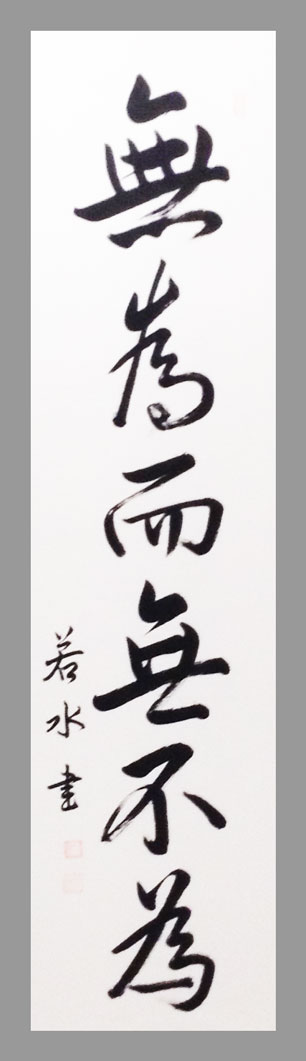 無為而無不為
若水書